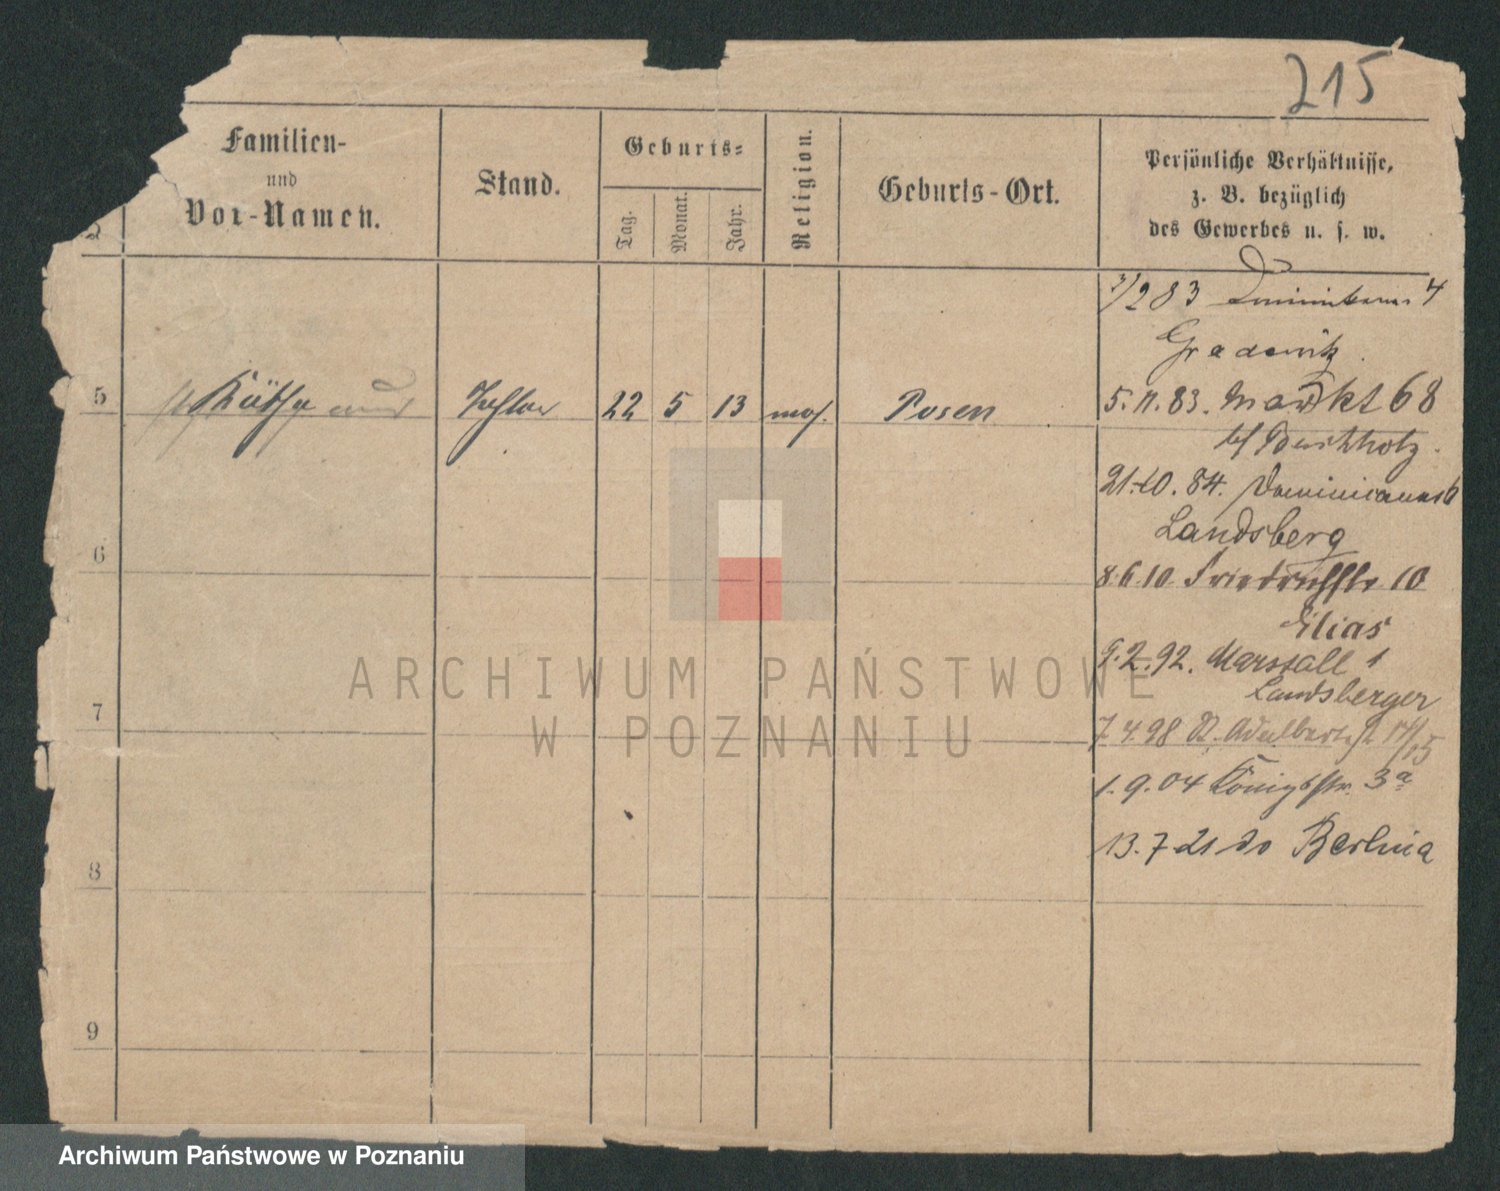 215
Familien-
und
Vor-Namen.
Stand.
Geburts-
Tag.
Monat.
Jahr.
Religion.
Geburts-Ort.
Persönliche Verhältnisse,
z. B. bezüglich
des Gewerbes u. s. w.
5
Käthe
Tochter
22
5
13
mos.
Posen
6
7
8
9
/283 4
5. 11. 83. Markt 68
b/ Buchholz.
21.10.84.
Landsberg
8.6.10 Friedrichstr 10
Elias
9.2.92. Marstall 1
Landsberger
7 4 98 St. Adalbertst 14/15
1.9.04 Königsstr. 3a
13.7 21 Berlin
ARCHIWUM PAŃSTWOWE
W POZNANIU
Archiwum Państwowe w Poznaniu